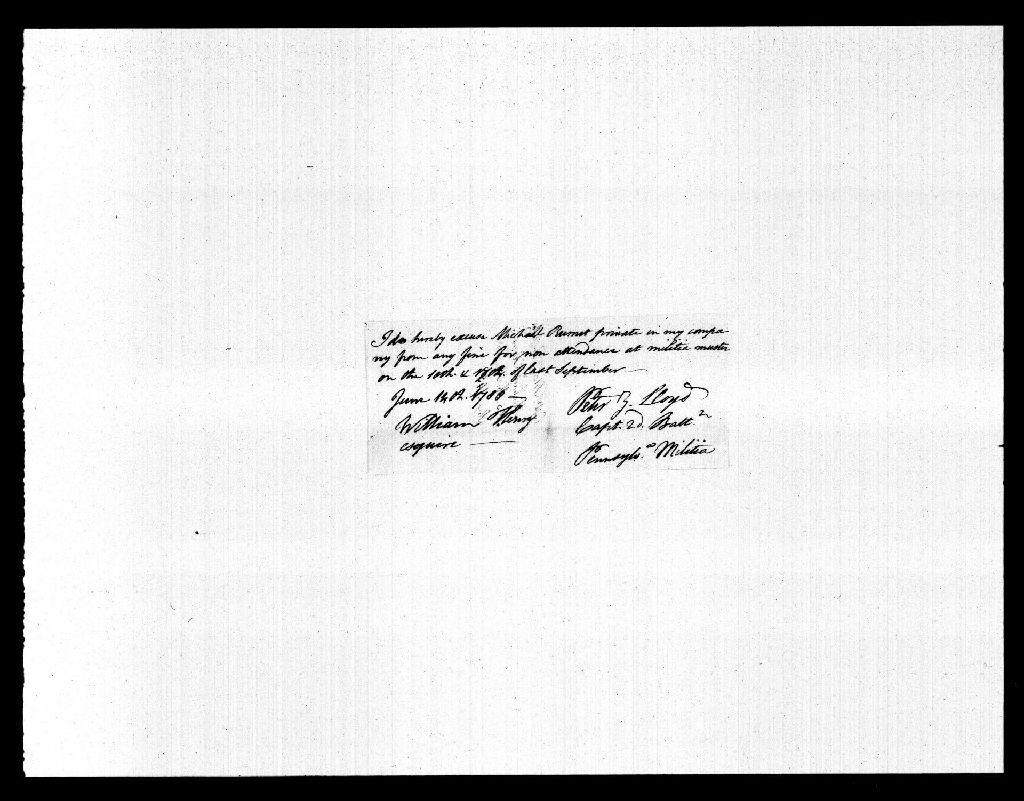 I do hereby excuse Michall private in my compa
ny from any fine for non attendance at militia muster
on the 10th. & of last September
June 14th. 1788
William Henry Petr Z. Lloyd
esquire Capt. 2d. Batt n
Pennsylv.a Militia